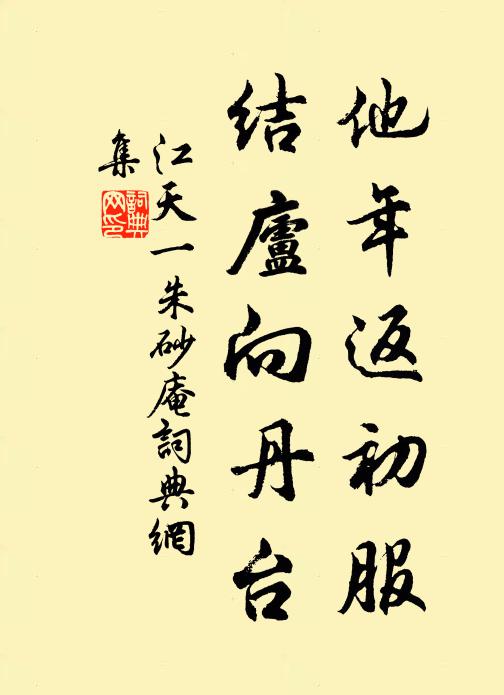 他年返初服
结廬向丹台
江天一朱砂庵詞典網
集
詞典
网印